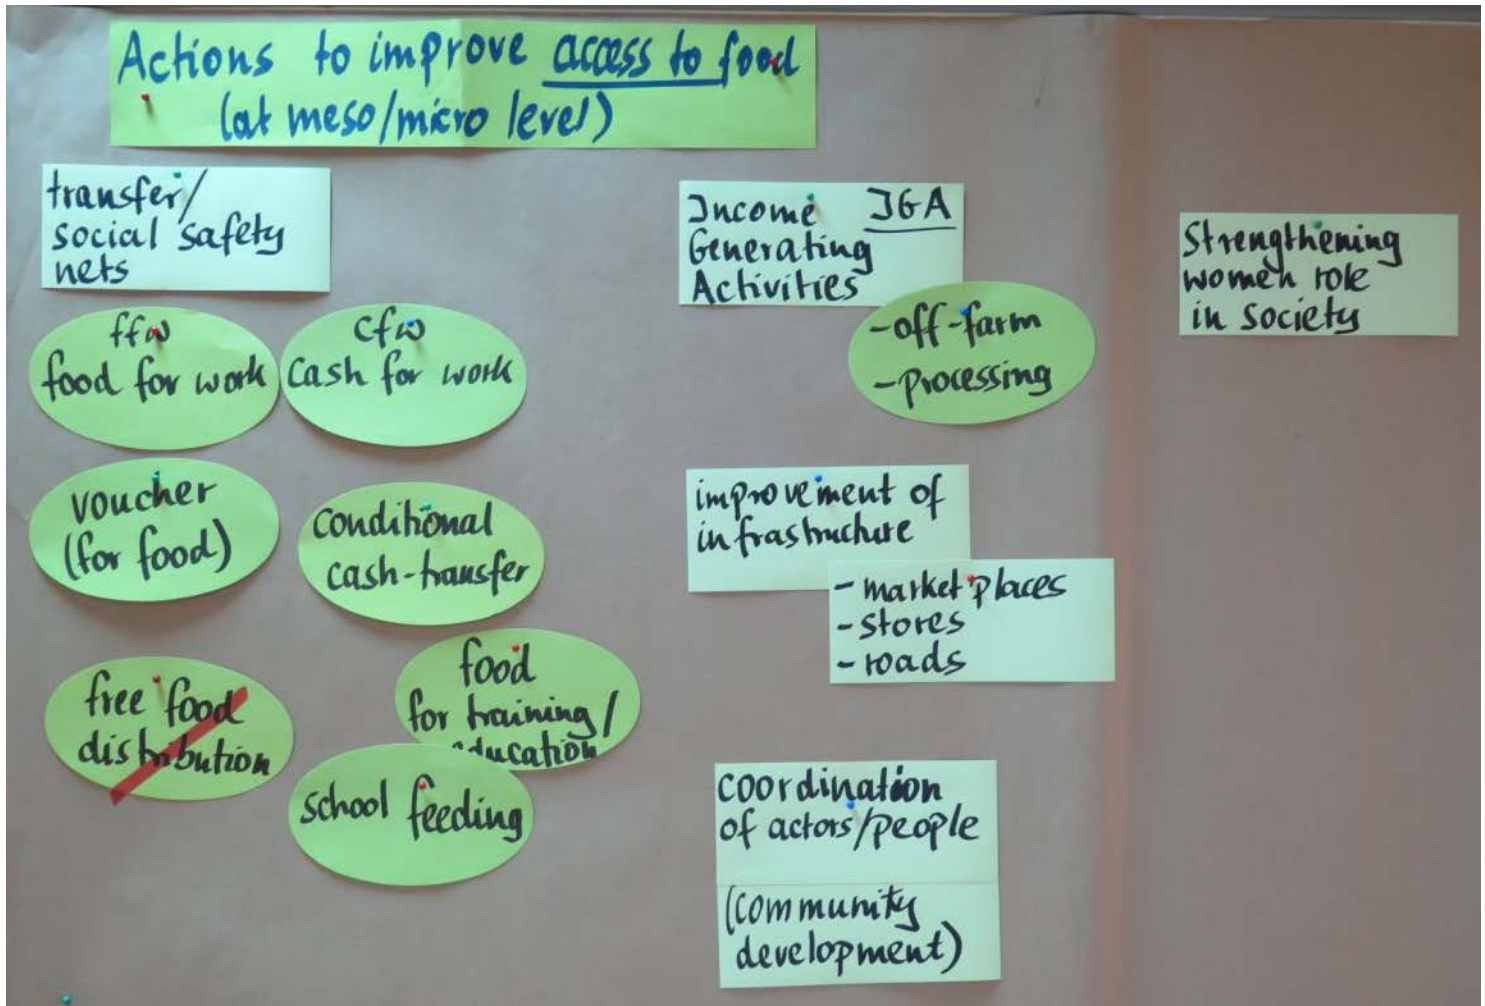 Actions to improve access to food
(at meso/micro level)
transfer/
social safety
nets
ffw
food for work
cfw
cash for work
voucher
(for food)
conditional
cash-transfer
free food
distribution
food
for training/
education
school feeding
Income IGA
Generating
Activities
-off-farm
-processing
improvement of
infrastructure
- market places
- stores
- roads
coordination
of actors/people
(community
development)
Strengthening
women role
in society